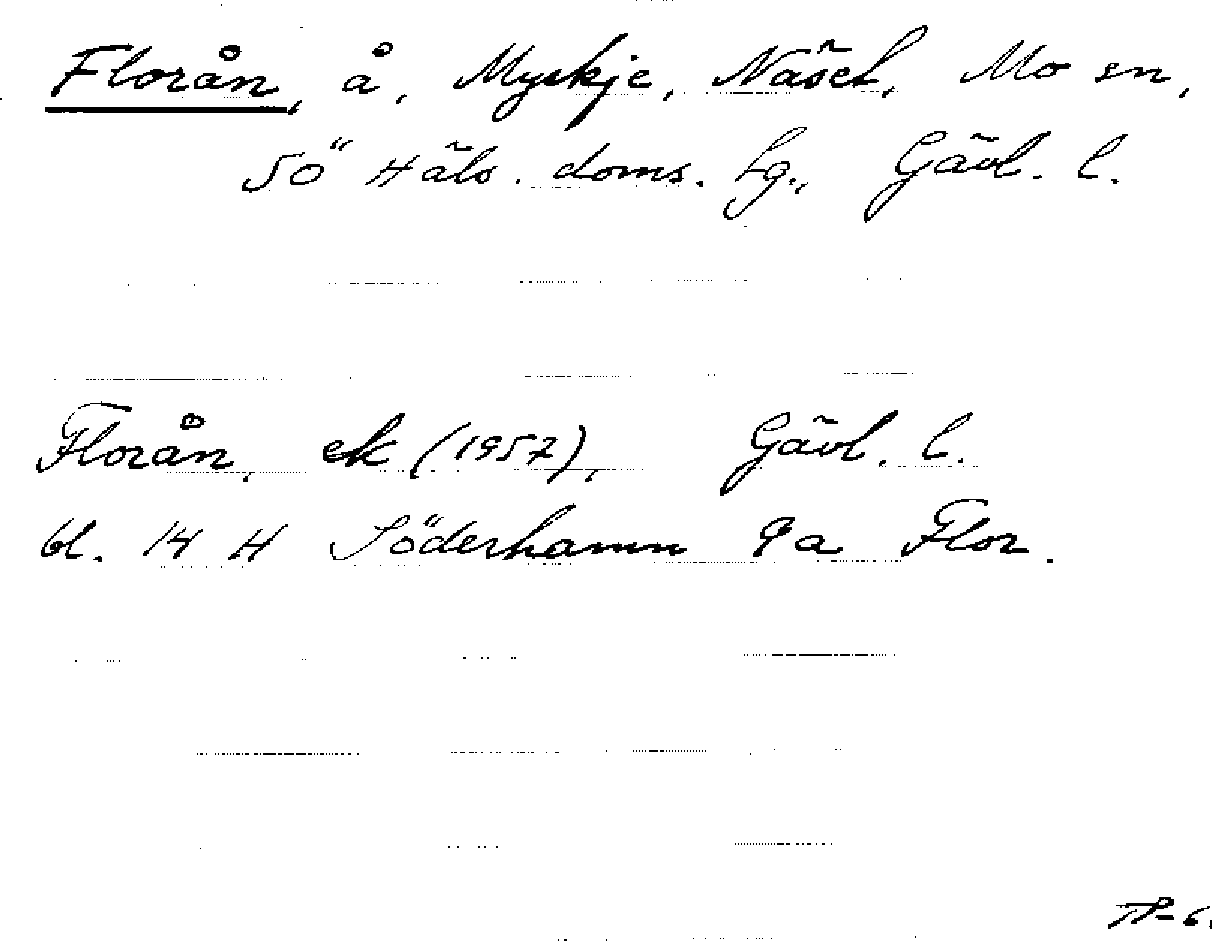 Florån, å, Myskje, Näsek, Mo sn,
SÖ Häls. doms. lg., Gävl. l.
Florån, ek (1957), Gävl. l.
bl. 14 H Söderhamn 9a Flor.